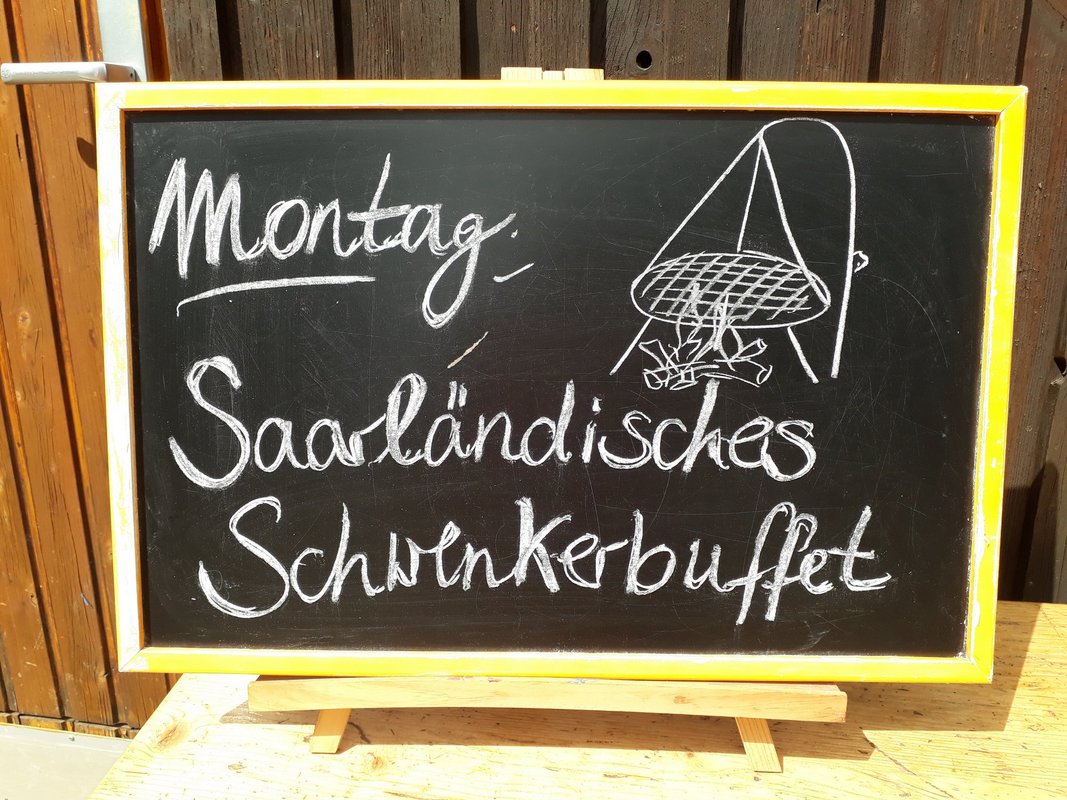 Montag:
Saarländisches
Schwenkerbuffet